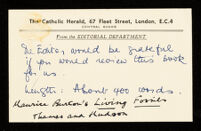 The Catholic Herald, 67 Fleet Street, London, E.C.4
From the EDITORIAL DEPARTMENT
The Editor would be grateful
if you would review this book
for us.
Length: About 400 words.
Maurice Burton's Living Fossils
Thames and Hudson